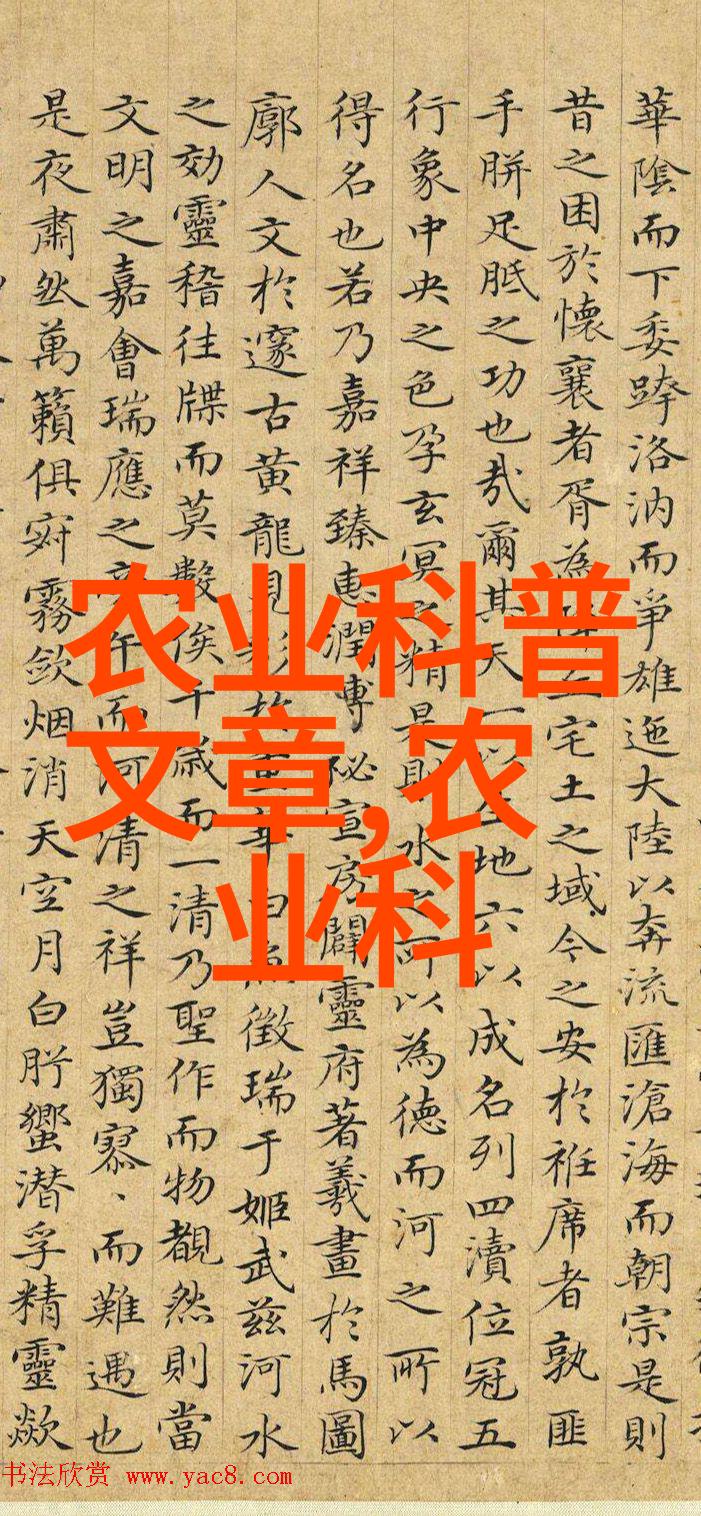 華陰而下委跨洛汭而爭雄迤大陸以奔流匯滄海而朝宗是則
昔之困於懷襄者胥為宅土之域今之安於袵席者孰匪
手胼足胝之功也哉爾其天一以生地六以成名列四瀆位冠五
行象中央之色孕玄冥之精是則水之所以為德而河之所以
得名也若乃嘉祥臻惠潤博秘宣房闢靈府著羲畫於馬圖
廓人文於邃古黃龍見徵瑞于姬武茲河水
之効靈稽往牒而莫數俟千歲而一清乃聖作而物覩然則當
文明之嘉會瑞應之午而河清之祥豈獨寥、而難遇也
是夜肅然萬籟俱寂霧斂烟消天空月白肸蠁潛孚精靈歘
农业科普
文章,农
业科
书法欣赏 www.yac8.com